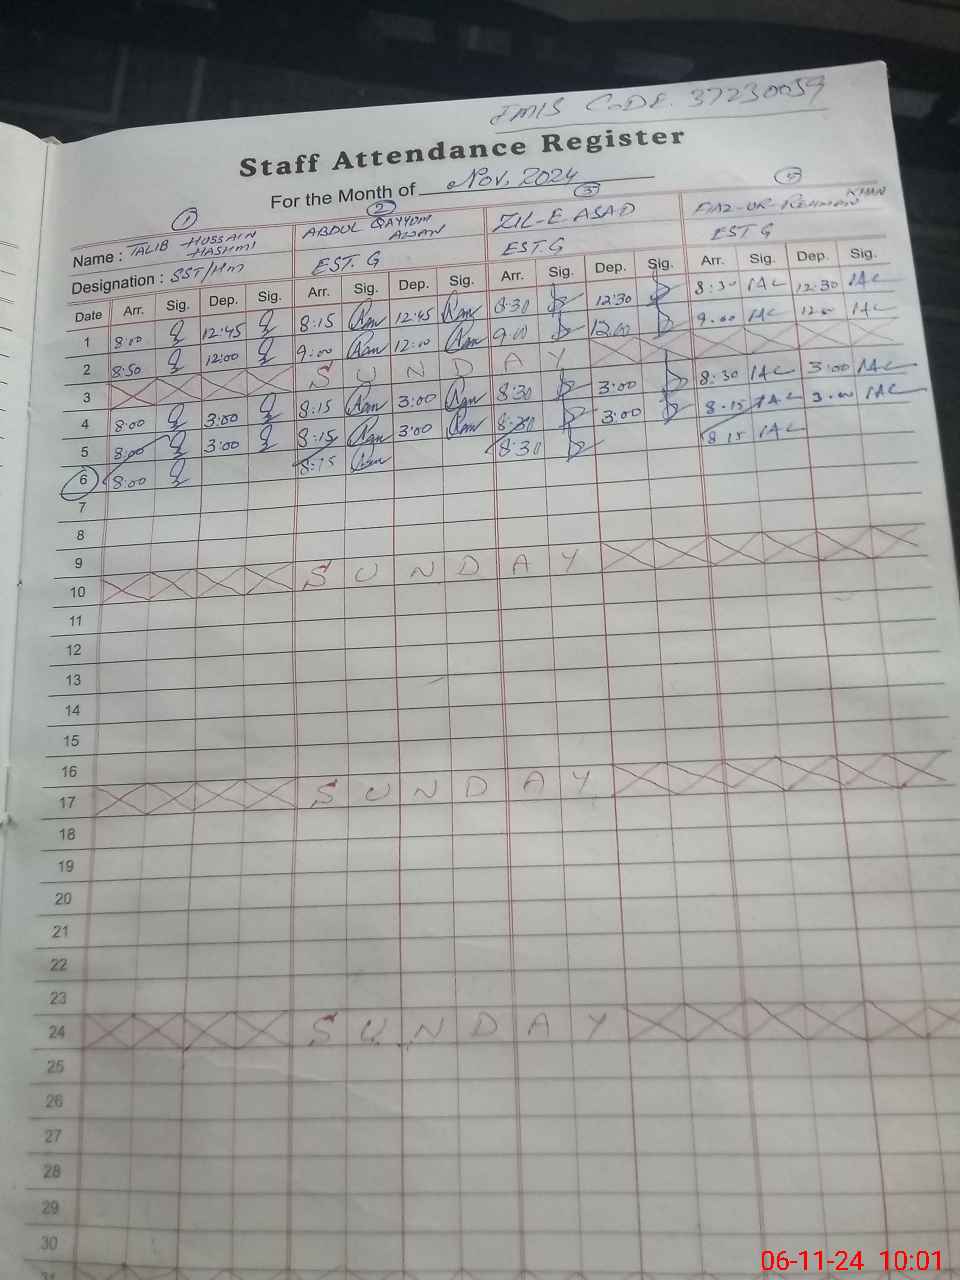 EMIS CODE. 37230059
Staff Attendance Register
For the Month of Nov, 2024
1 2 3
Name : TALIB HUSSAIN HASHMI ABDUL QAYYUM AWAN ZIL-E-ASAD FIAZ-UR-REHMAN KHAN
Designation : SST/HM EST. G EST. G EST G
Date Arr. Sig. Dep. Sig. Arr. Sig. Dep. Sig. Arr. Sig. Dep. Sig. Arr. Sig. Dep. Sig.
1 8:00 12:45 8:15 12:45 8:30 12:30 8:30 12:30
2 8:50 12:00 9:00 12:00 9:00 12:00 9:00 12:00
3 SUNDAY
4 8:00 3:00 8:15 3:00 8:30 3:00 8:30 3:00
5 8:00 3:00 8:15 3:00 8:30 3:00 8:15 3:00
6 8:00 8:15 8:30 8:15
7
8
9
10 SUNDAY
11
12
13
14
15
16
17 SUNDAY
18
19
20
21
22
23
24 SUNDAY
25
26
27
28
29
30
06-11-24 10:01